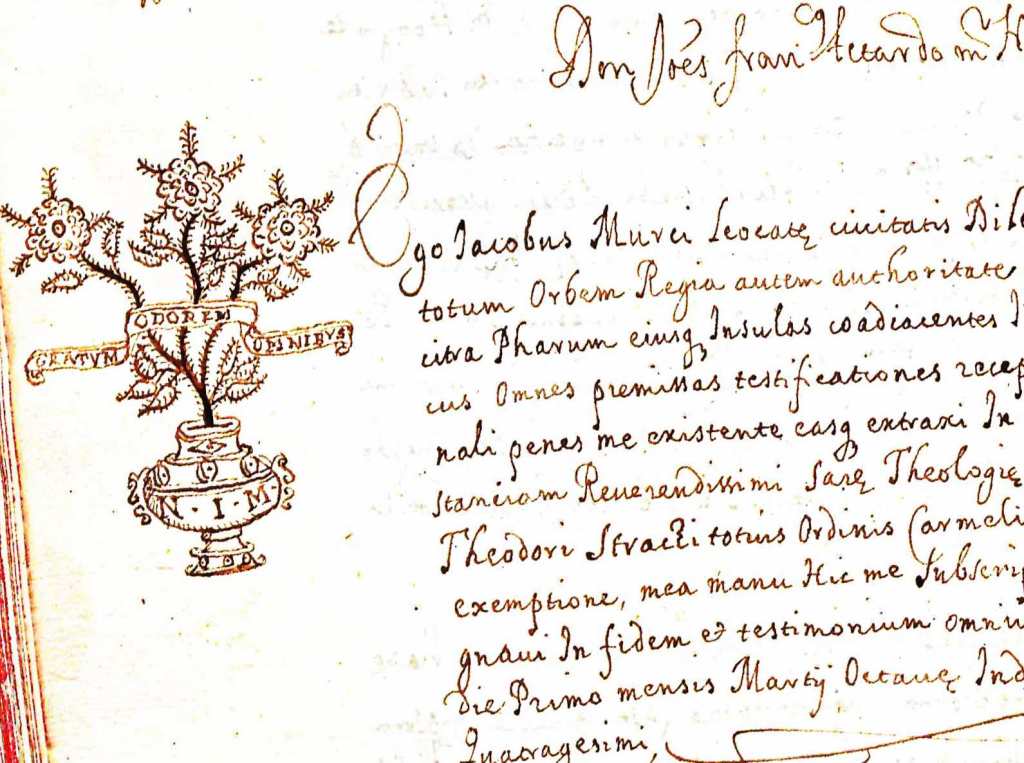 Don Joēs fran Accardo
Ego Jacobus Murci Leocatę ciuitatis
totum Orbem Regia autem authoritate
citra Pharum eiusq Insulas coadiacentes
cus Omnes premissas testificationes recep
nali penes me existente easq extraxi In
stanciam Reuerendissimi Sacę Theologię
Theodori Stracci totius Ordinis Carmeli
exemptione, mea manu Hic me Subscrip
gnaui In fidem et testimonium omniu
die Primo mensis Martÿ Octauę Ind
Quatragesimi,
GRATVM ODOREM OMNIBVS
N·I·M